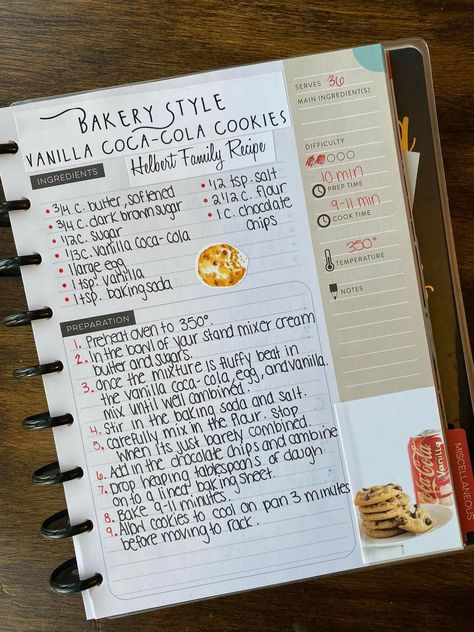 BAKERY STYLE
VANILLA COCA-COLA COOKIES
Helbert Family Recipe
INGREDIENTS
• 3/4 c. butter, softened
• 3/4 c. dark brown sugar
• 1/2 c. sugar
• 1/3 c. vanilla coca-cola
• 1 large egg
• 1 tsp. vanilla
• 1 tsp. baking soda
• 1/2 tsp. salt
• 2 1/2 c. flour
• 1 c. chocolate
chips
PREPARATION
1. Preheat oven to 350°.
2. In the bowl of your stand mixer cream
butter and sugars.
3. Once the mixture is fluffy beat in
the vanilla coca-cola, egg, and vanilla.
mix until well combined.
4. Stir in the baking soda and salt.
5. Carefully mix in the flour. Stop
when its just barely combined.
6. Add in the chocolate chips and combine
7. Drop heaping tablespoons of dough
on to a lined baking sheet.
8. Bake 9-11 minutes.
9. Allow cookies to cool on pan 3 minutes
before moving to rack.
SERVES 36
MAIN INGREDIENT(S)
DIFFICULTY
10 min
PREP TIME
9-11 min
COOK TIME
350°
TEMPERATURE
NOTES
Coca-Cola
Vanilla
MISCELLANEOUS